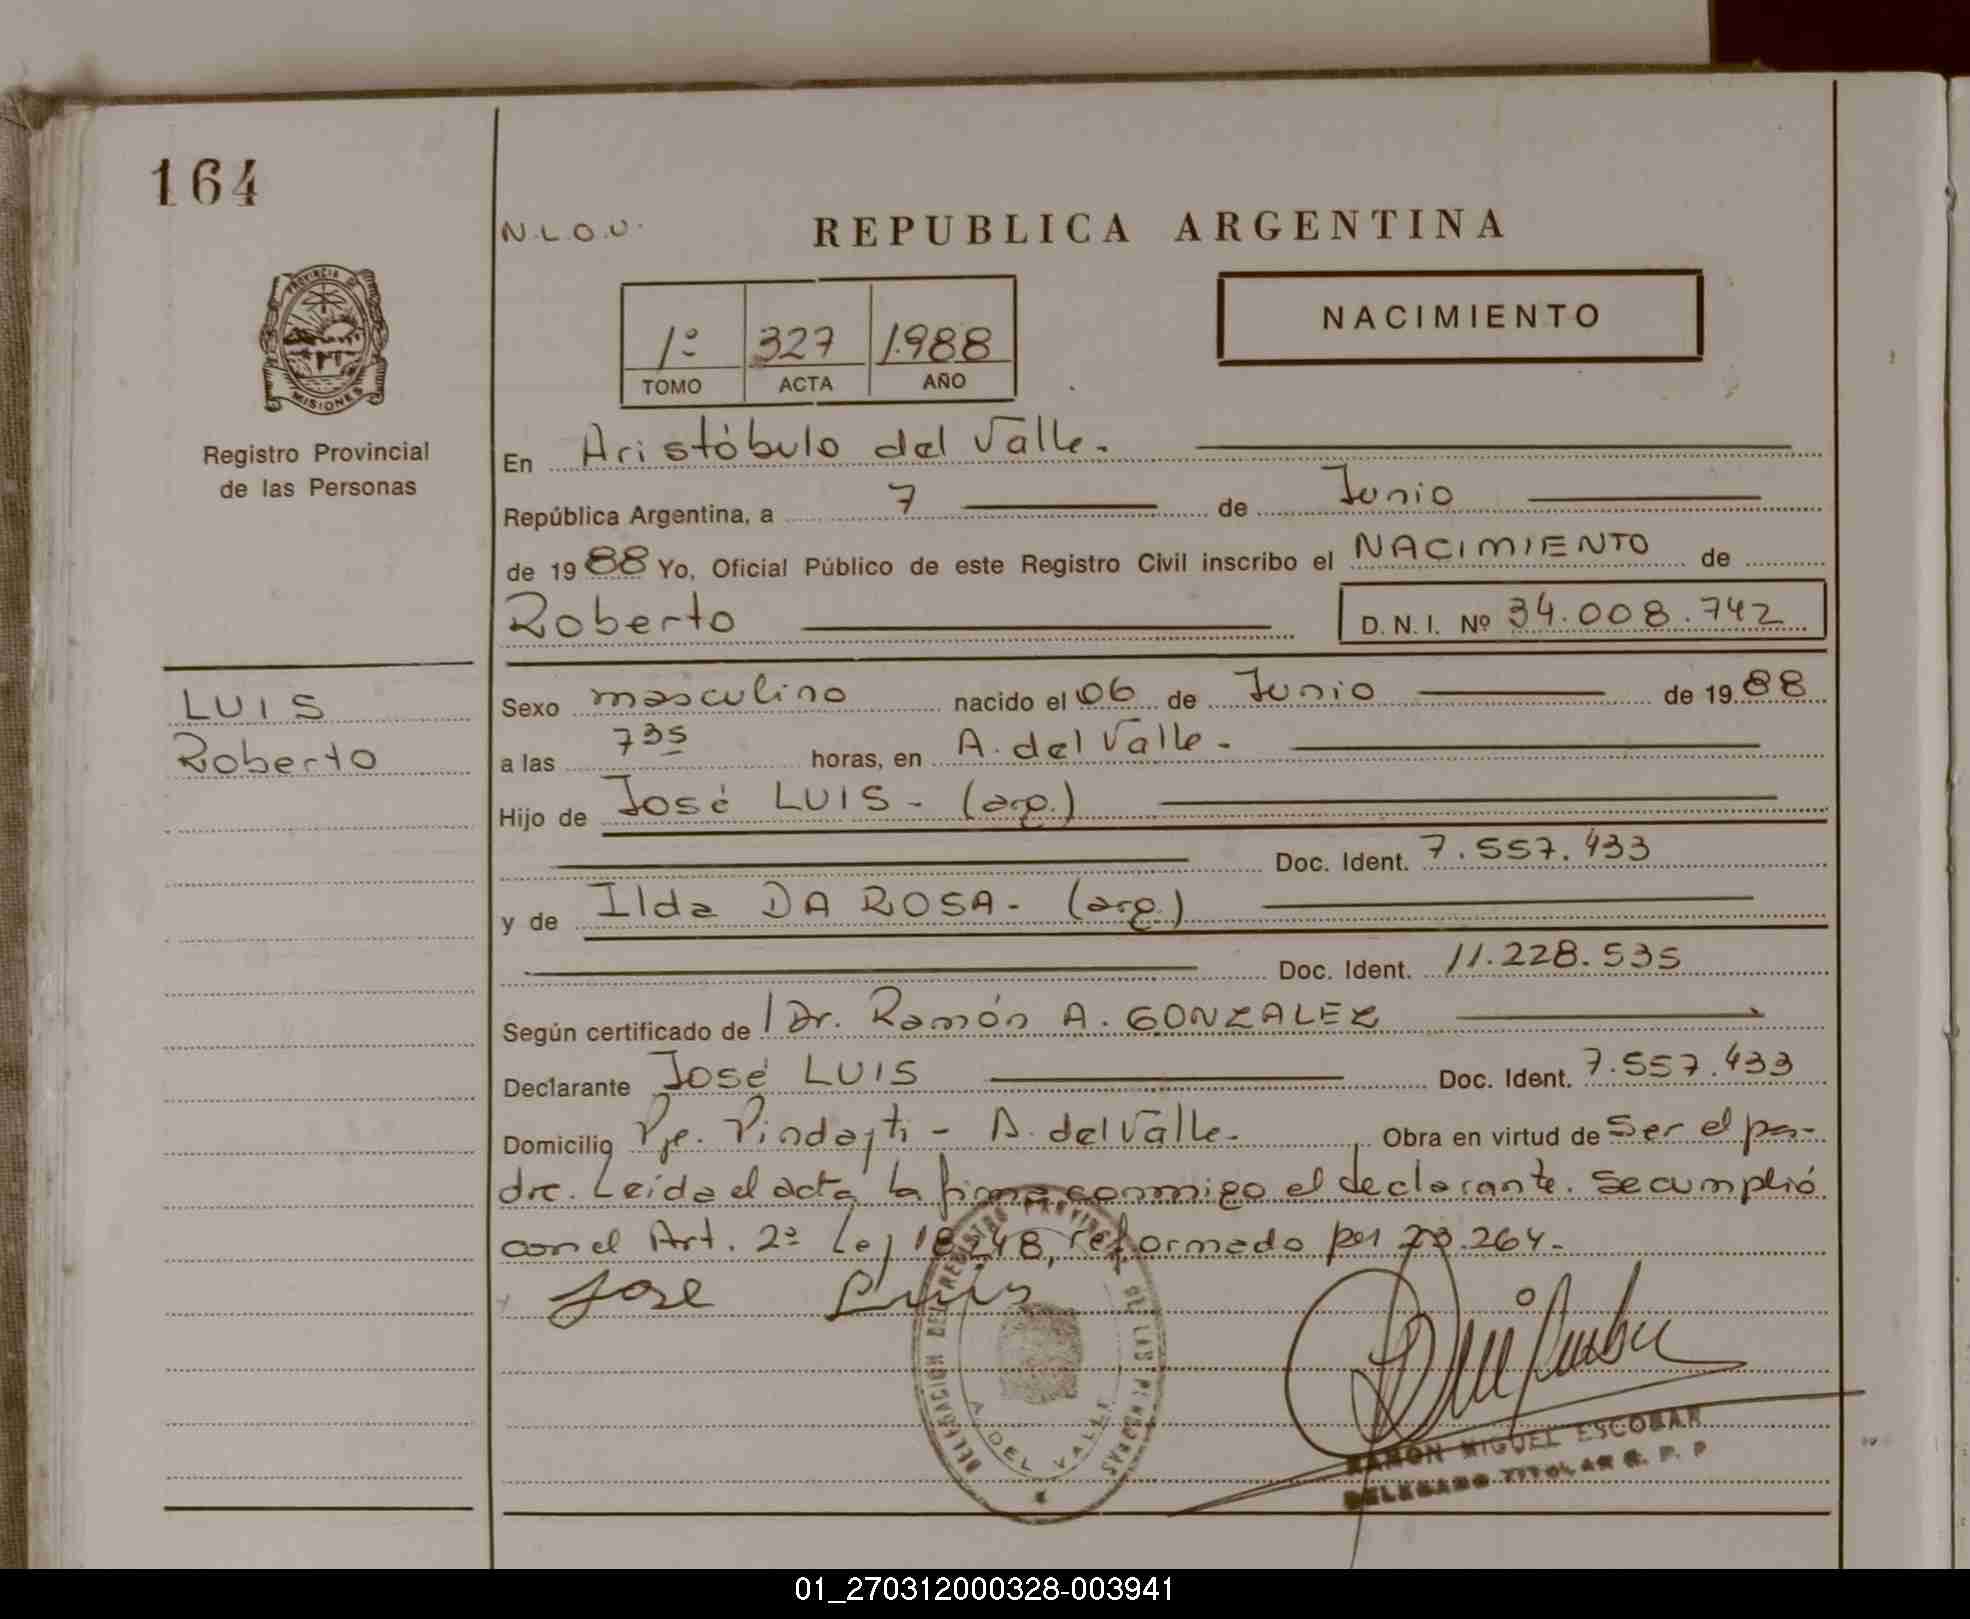 164
N.L.O.U.
REPUBLICA ARGENTINA
PROVINCIA DE
MISIONES
Registro Provincial
de las Personas
1º 327 1.988
TOMO ACTA AÑO
NACIMIENTO
En Aristóbulo del Valle.
República Argentina, a 7 de Junio
de 1988 Yo, Oficial Público de este Registro Civil inscribo el NACIMIENTO de
Roberto D.N.I. Nº 34.008.742
LUIS
Roberto
Sexo masculino nacido el 06 de Junio de 1988
a las 735 horas, en A. del Valle.
Hijo de José LUIS - (arg.)
Doc. Ident. 7.557.433
y de Ilda DA ROSA - (arg.)
Doc. Ident. 11.228.535
Según certificado de Dr. Ramón A. GONZALEZ
Declarante José LUIS Doc. Ident. 7.557.433
Domicilio Pje. Pindayti - A. del Valle. Obra en virtud de Ser el pa-
dre. Leída el acta la firma conmigo el declarante. Se cumplió
con el Art. 2º Ley 18.248, reformado por 23.264.
Jose Luis
DELEGACION DEL REGISTRO PROVINCIAL DE LAS PERSONAS
A. DEL VALLE
RAMON MIGUEL ESCOBAR
DELEGADO TITULAR R. P. P
01_270312000328-003941